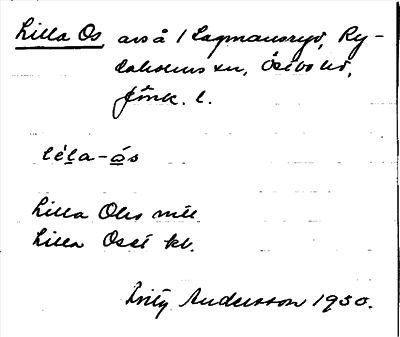 Lilla Os, avs å 1 Lagmansryd, Ry-
daholms sn, Östbo hd,
Jönk. l.
léla-ós
Lilla Olis
Lilla Oset kb.
Andersson 1930.